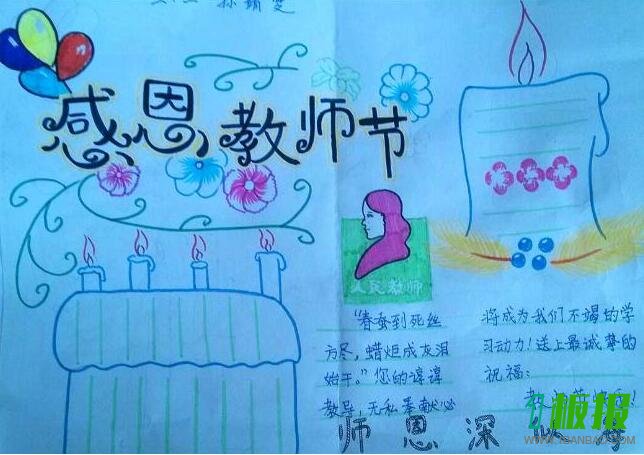 感恩教师节
人民教师
“春蚕到死丝
方尽，蜡炬成灰泪
始干。”您的谆谆
教导，无私奉献必
将成为我们不竭的学
习动力！送上最诚挚的
祝福：
教师节快乐！
师恩深似海
板报